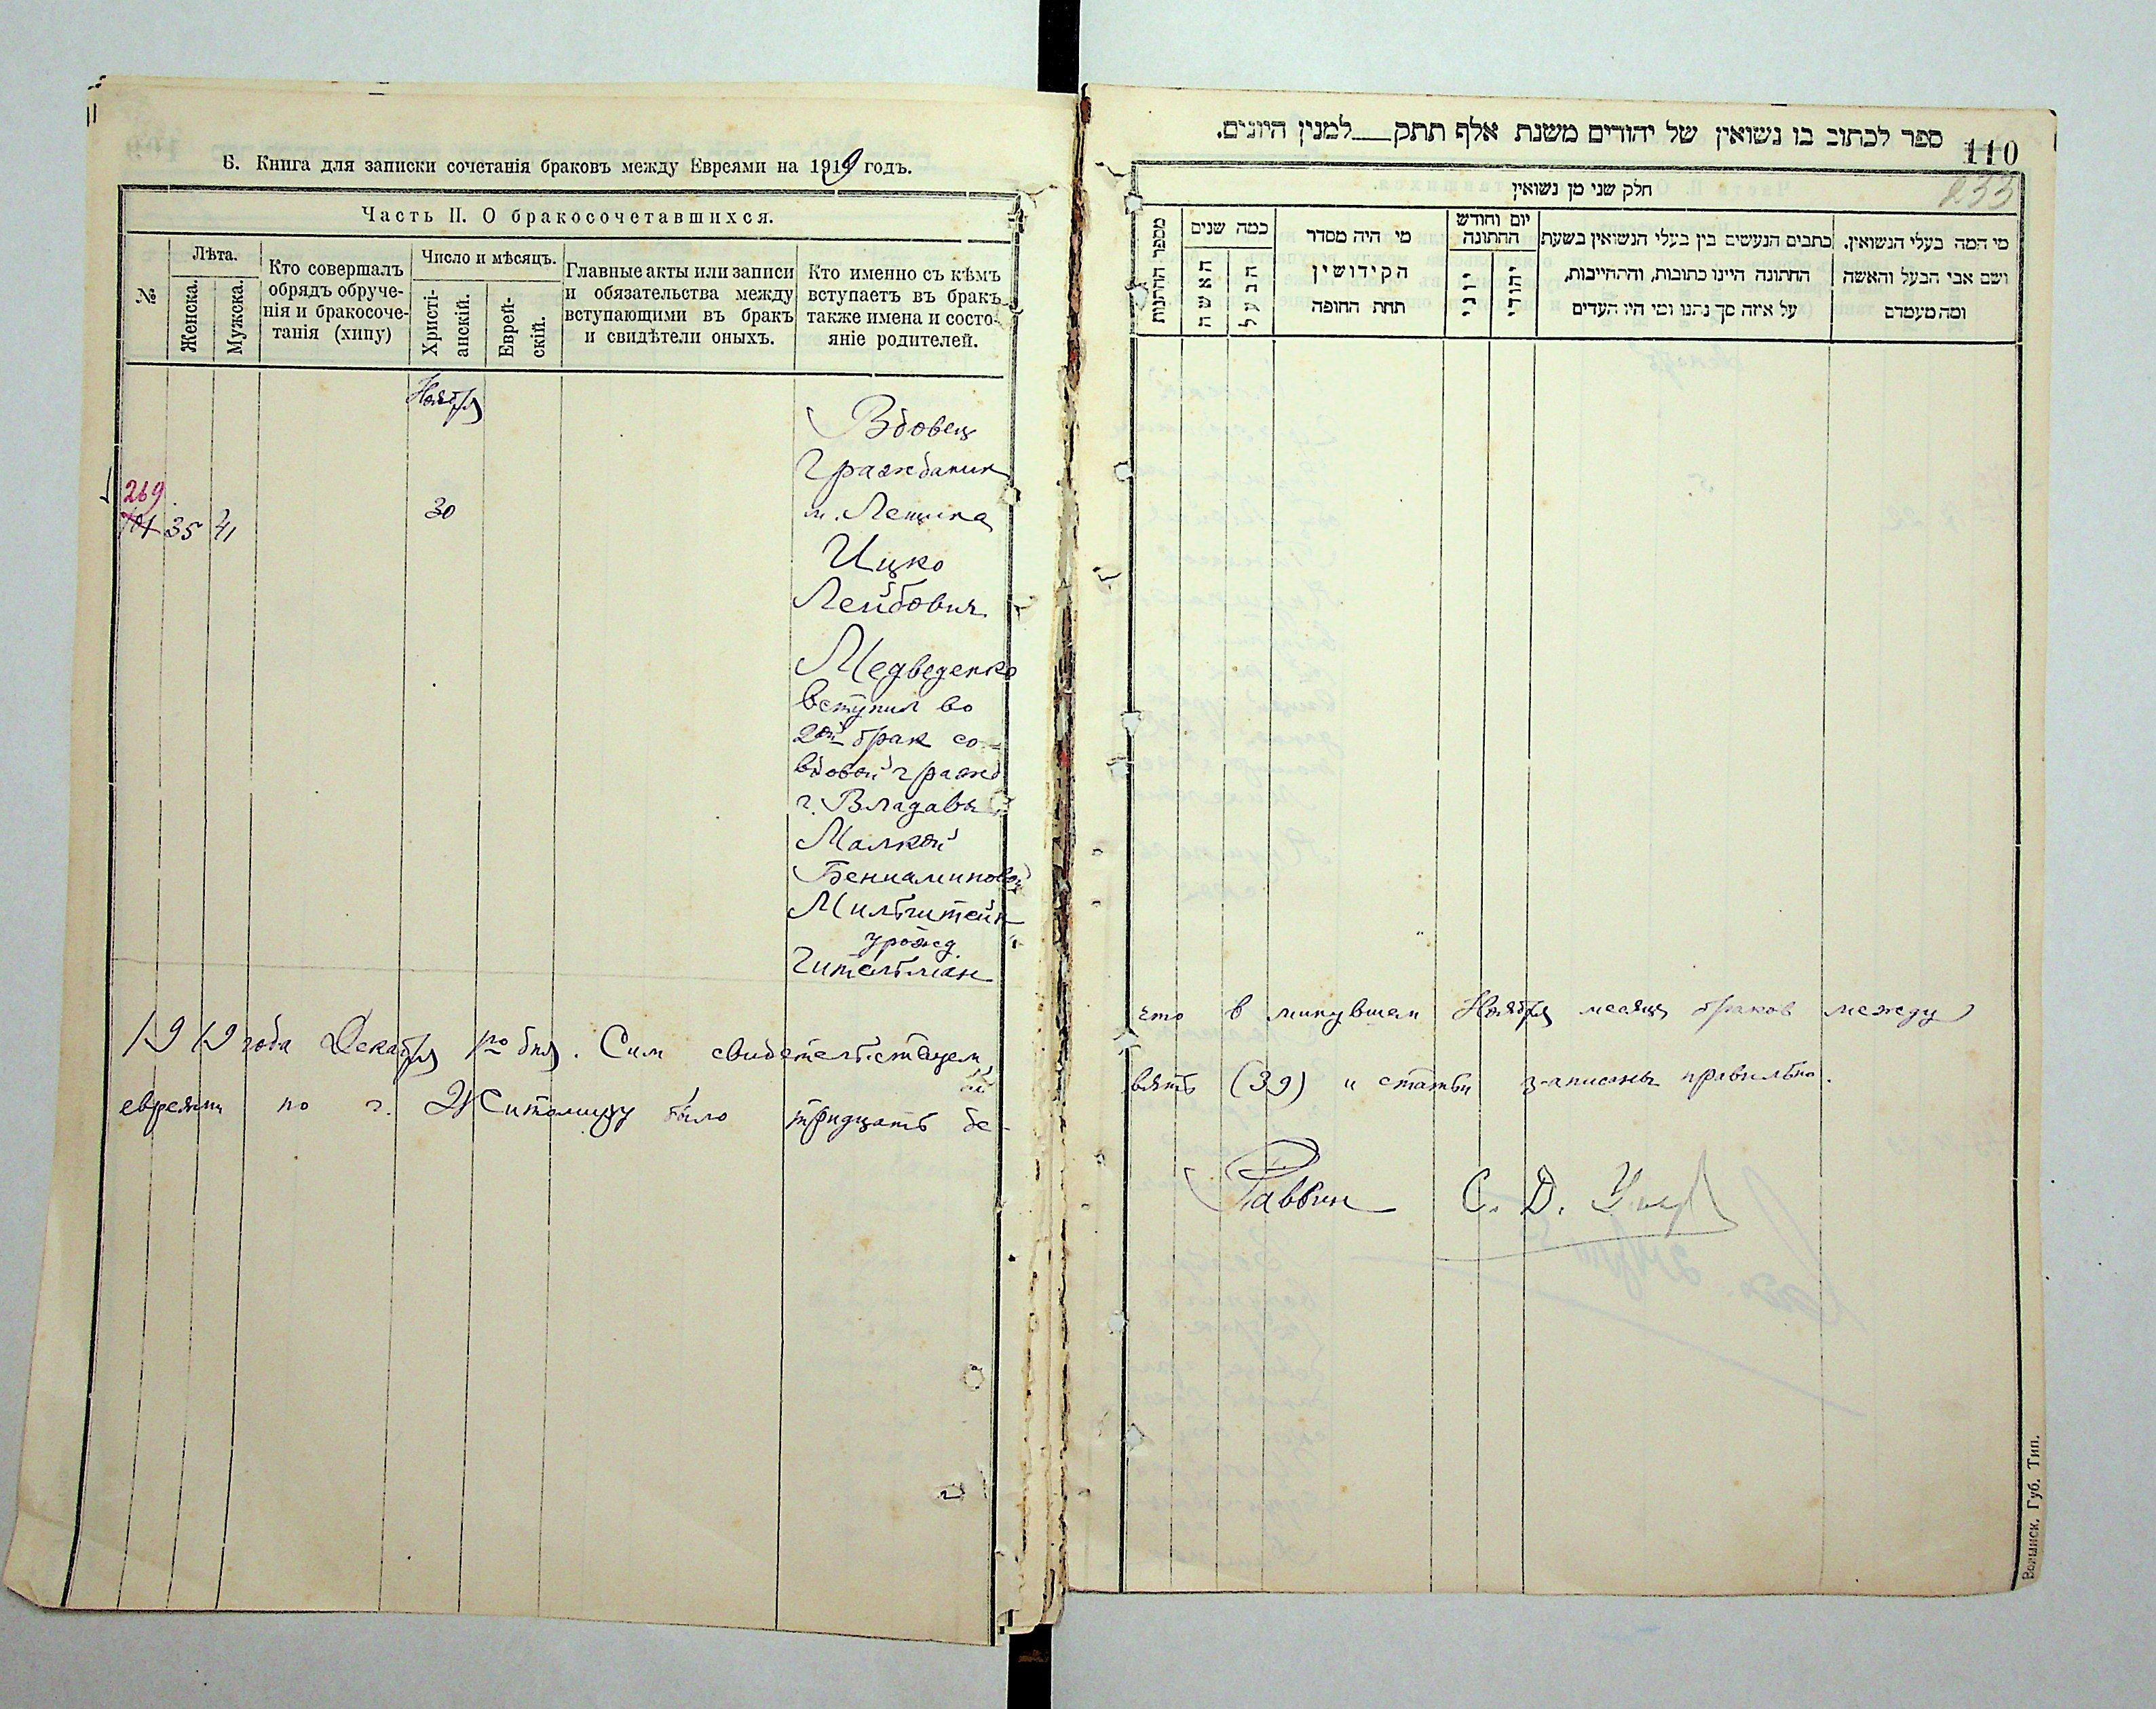 Б. Книга для записки сочетанія браковъ между Евреями на 1919 годъ.
Часть II. О бракосочетавшихся.
№
Лѣта.
Женска.
Мужска.
Кто совершалъ
обрядъ обруче-
нія и бракосоче-
танія (хипу)
Число и мѣсяцъ.
Христі-
анскій.
Еврей-
скій.
Главные акты или записи
и обязательства между
вступающими въ бракъ
и свидѣтели оныхъ.
Кто именно съ кѣмъ
вступаетъ въ бракъ
также имена и состо-
яніе родителей.
Ноября
269
101 35 41 30
Вдовец
Гражданин
м. Лещина
Ицко
Лейбович
Медведенко
вступил во
2ой брак со
вдовой гражд
г. Владавы
Малкой
Бениаминовой
Мильштейн
урожд.
Гительман
1919 года Декабря 1го дня. Сим свидетельствуем,
евреями по г. Житомиру было тридцать де-
ספר לכתוב בו נשואין של יהודים משנת אלף תתק למנין היונים.
110
233
חלק שני מן נשואין
מי המה בעלי הנשואין,
ושם אבי הבעל והאשה
ומה מעמדם
כתבים הנעשים בין בעלי הנשואין בשעת
החתונה היינו כתובות, והתחייבות,
על איזה סך נתנו ומי היו העדים
יום וחודש
החתונה
יהודי
יוני
מי היה מסדר
הקידושין
תחת החופה
כמה שנים
הבעל
האשה
מספר החתנות
что в минувшем Ноябре месяце браков между
вять (39) и статьи записаны правильно.
Раввин С. D.
Волынск. Губ. Тип.